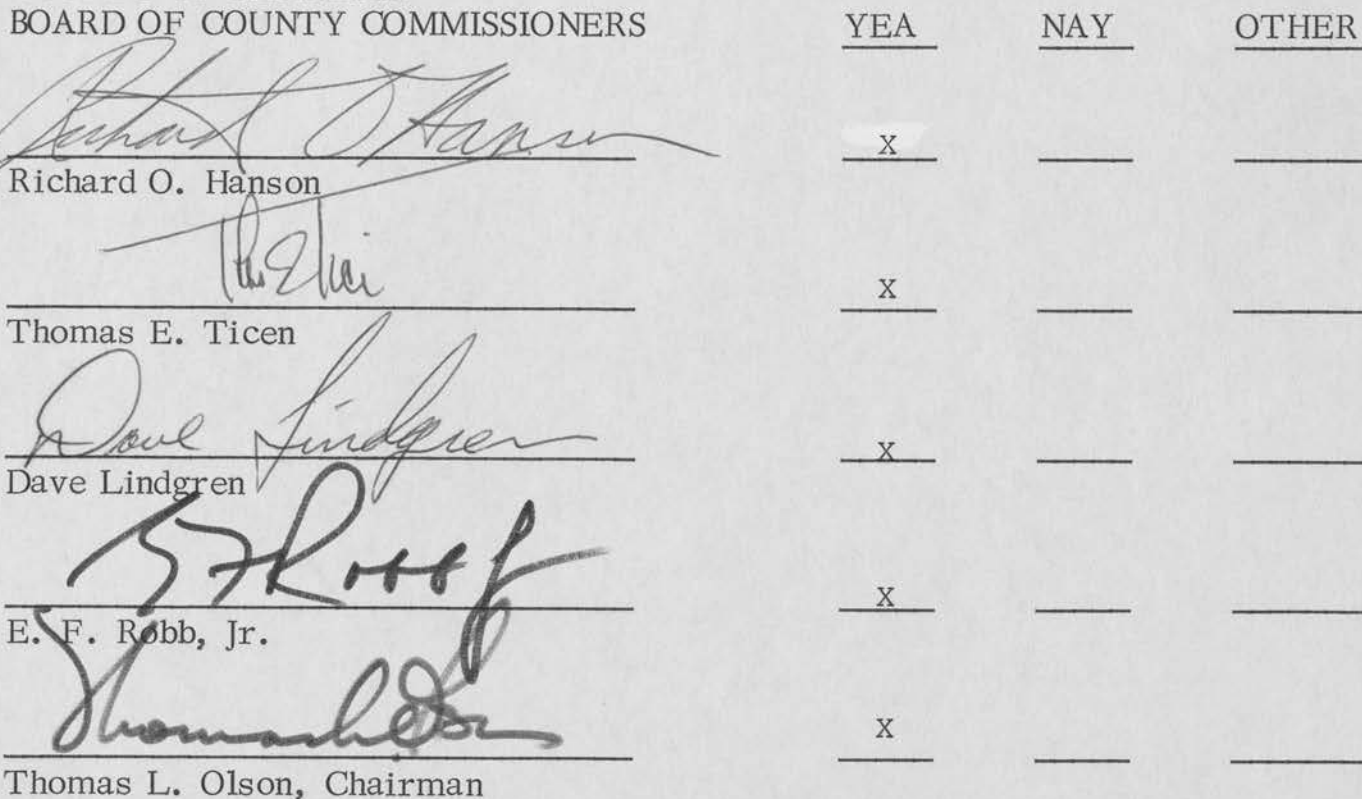 BOARD OF COUNTY COMMISSIONERS YEA NAY OTHER
Richard O Hanson X
Richard O. Hanson
X
Thomas E. Ticen
Dave Lindgren X
Dave Lindgren
EF Robb Jr X
E. F. Robb, Jr.
Thomas L Olson X
Thomas L. Olson, Chairman